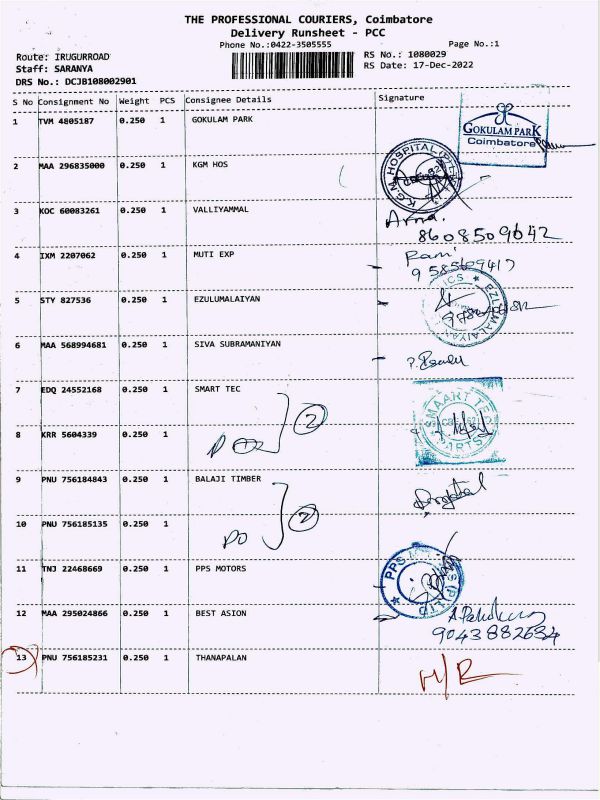 THE PROFESSIONAL COURIERS, Coimbatore
Delivery Runsheet - PCC
Phone No.:0422-3505555 Page No.:1
Route: IRUGURROAD RS No.: 1080029
Staff: SARANYA RS Date: 17-Dec-2022
DRS No.: DCJB108002901
S No Consignment No Weight PCS Consignee Details Signature
1 TVM 4805187 0.250 1 GOKULAM PARK
GOKULAM PARK
Coimbatore
2 MAA 296835000 0.250 1 KGM HOS
3 KOC 60083261 0.250 1 VALLIYAMMAL
8608509642
4 IXM 2207062 0.250 1 MUTI EXP
Rani
9585609417
5 STY 827536 0.250 1 EZULUMALAIYAN
6 MAA 568994681 0.250 1 SIVA SUBRAMANIYAN
7 EDQ 24552168 0.250 1 SMART TEC
2
SMAART TEC
PARTS
8 KRR 5604339 0.250 1
9 PNU 756184843 0.250 1 BALAJI TIMBER
2
10 PNU 756185135 0.250 1
PO
11 TNJ 22468669 0.250 1 PPS MOTORS
12 MAA 295024866 0.250 1 BEST ASION
9043882634
13 PNU 756185231 0.250 1 THANAPALAN
N/R